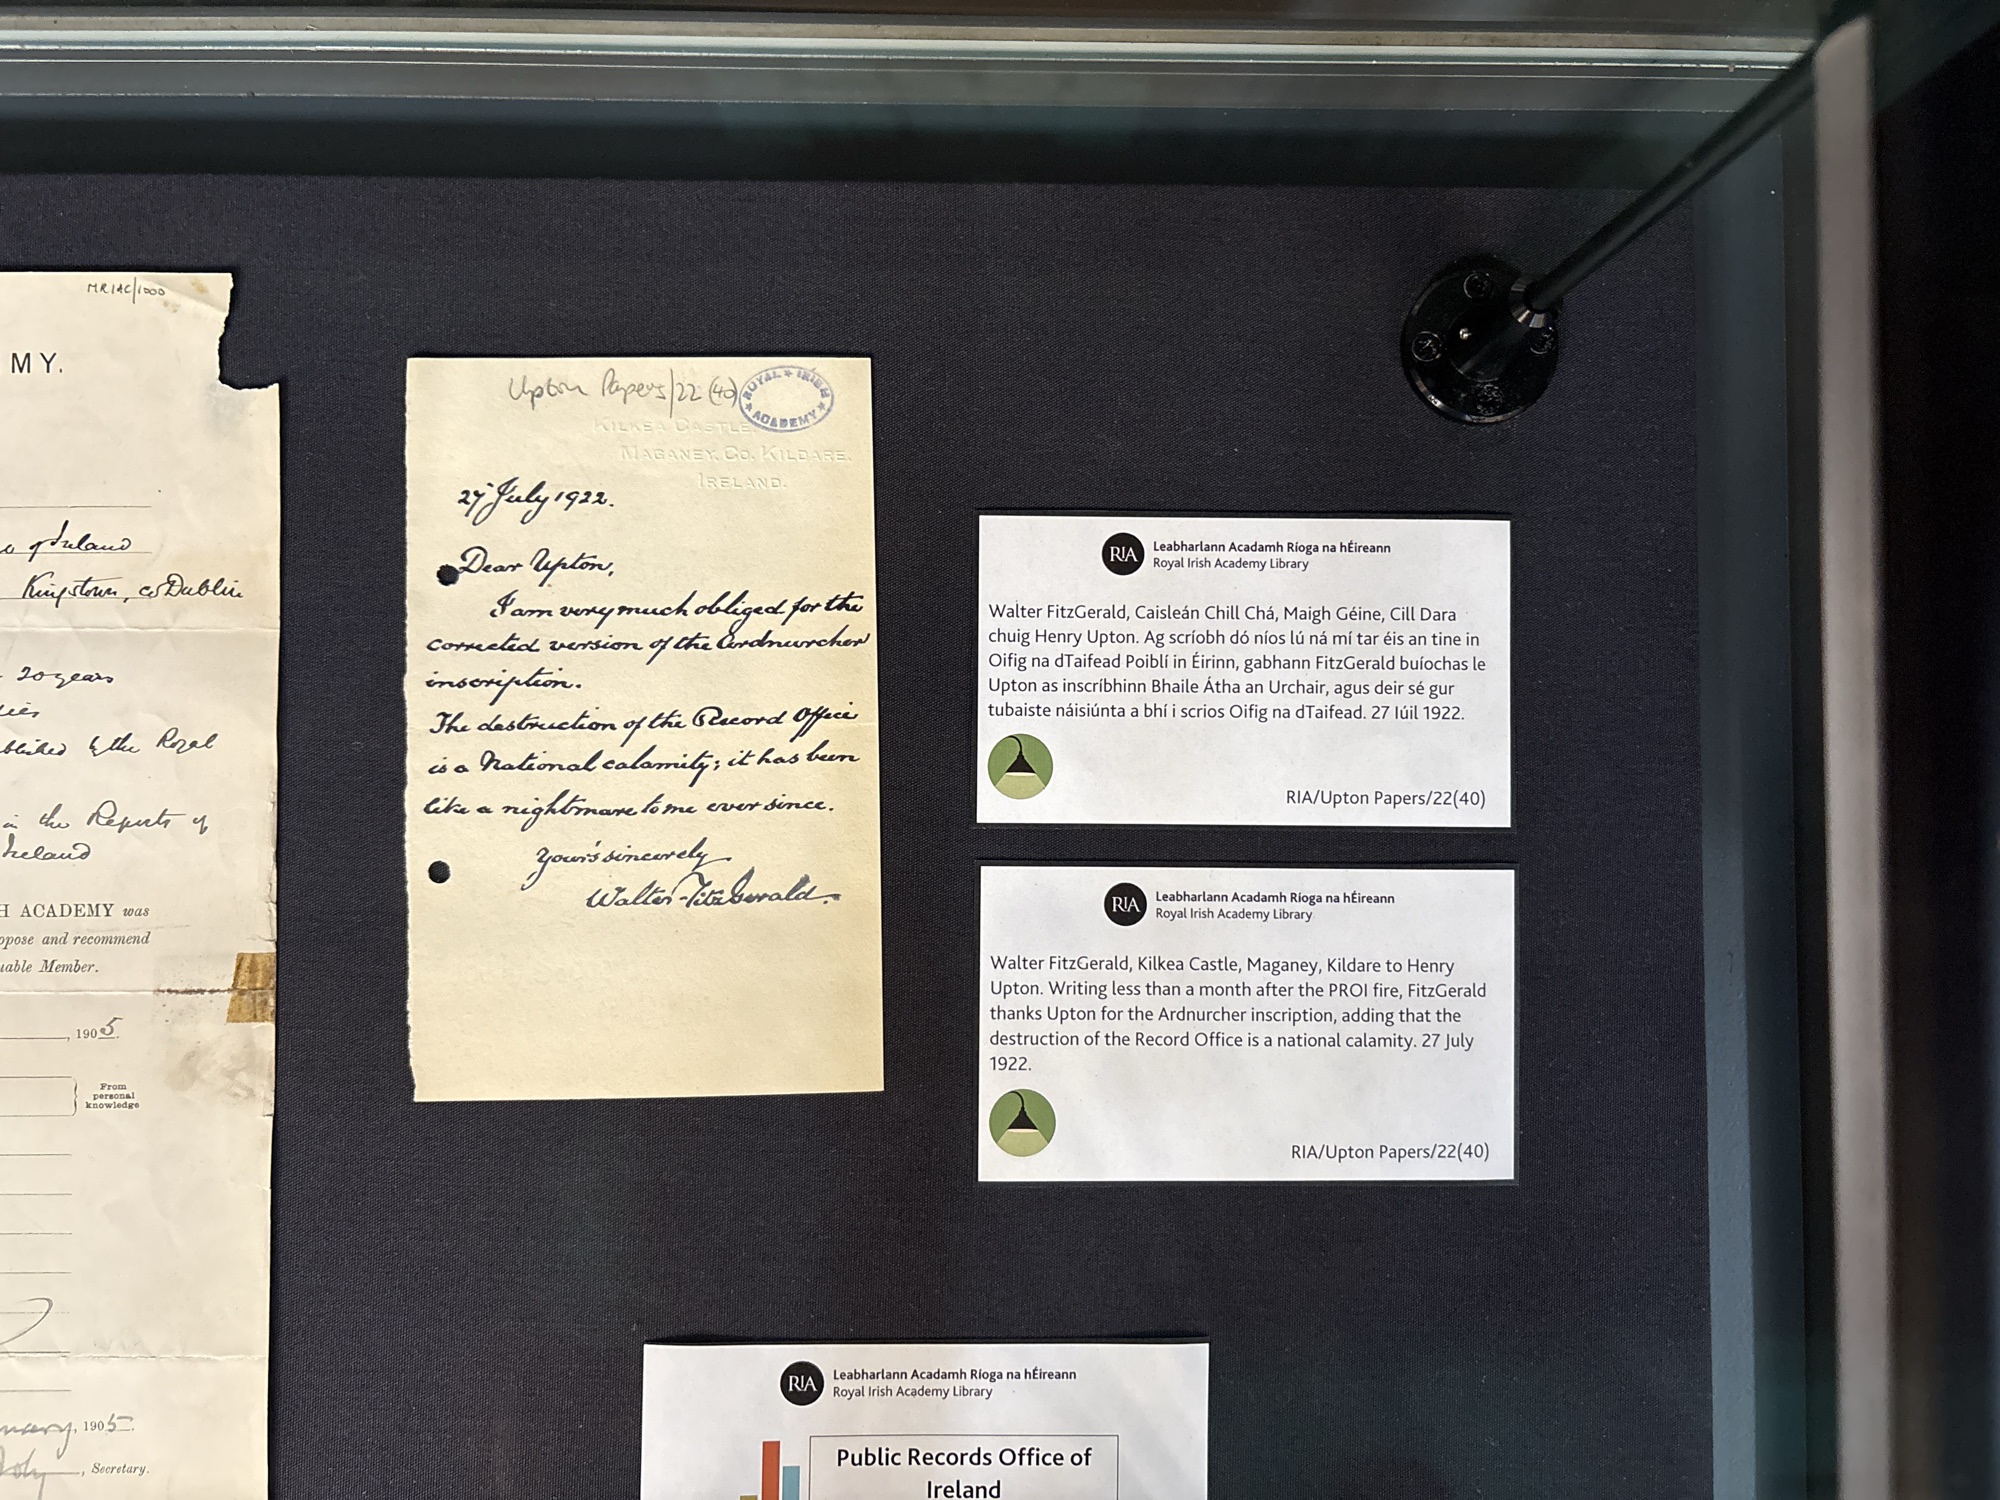 MRIAC/1000
MY.
of Ireland
Kingstown, co Dublin
20 years
by the Royal
in the Reports of
Ireland
H ACADEMY was
opose and recommend
uable Member.
, 1905.
From
personal
knowledge
, 1905.
, Secretary.
Upton Papers/22 (40)
ROYAL IRISH
ACADEMY
KILKEA CASTLE,
MAGANEY, CO. KILDARE,
IRELAND.
27 July 1922.
Dear Upton,
I am very much obliged for the
corrected version of the Ardnurcher
inscription.
The destruction of the Record Office
is a National calamity; it has been
like a nightmare to me ever since.
Yours sincerely
Walter FitzGerald.
RIA
Leabharlann Acadamh Ríoga na hÉireann
Royal Irish Academy Library
Walter FitzGerald, Caisleán Chill Chá, Maigh Géine, Cill Dara
chuig Henry Upton. Ag scríobh dó níos lú ná mí tar éis an tine in
Oifig na dTaifead Poiblí in Éirinn, gabhann FitzGerald buíochas le
Upton as inscríbhinn Bhaile Átha an Urchair, agus deir sé gur
tubaiste náisiúnta a bhí i scrios Oifig na dTaifead. 27 Iúil 1922.
RIA/Upton Papers/22(40)
RIA
Leabharlann Acadamh Ríoga na hÉireann
Royal Irish Academy Library
Walter FitzGerald, Kilkea Castle, Maganey, Kildare to Henry
Upton. Writing less than a month after the PROI fire, FitzGerald
thanks Upton for the Ardnurcher inscription, adding that the
destruction of the Record Office is a national calamity. 27 July
1922.
RIA/Upton Papers/22(40)
RIA
Leabharlann Acadamh Ríoga na hÉireann
Royal Irish Academy Library
Public Records Office of
Ireland